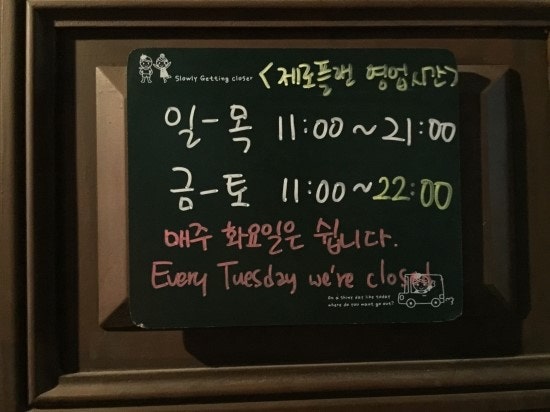 Slowly Getting closer <제로플랜 영업시간>
일-목 11:00~21:00
금-토 11:00~22:00
매주 화요일은 쉽니다.
Every Tuesday we're closed
On a shiny day like today
where do you want go out?